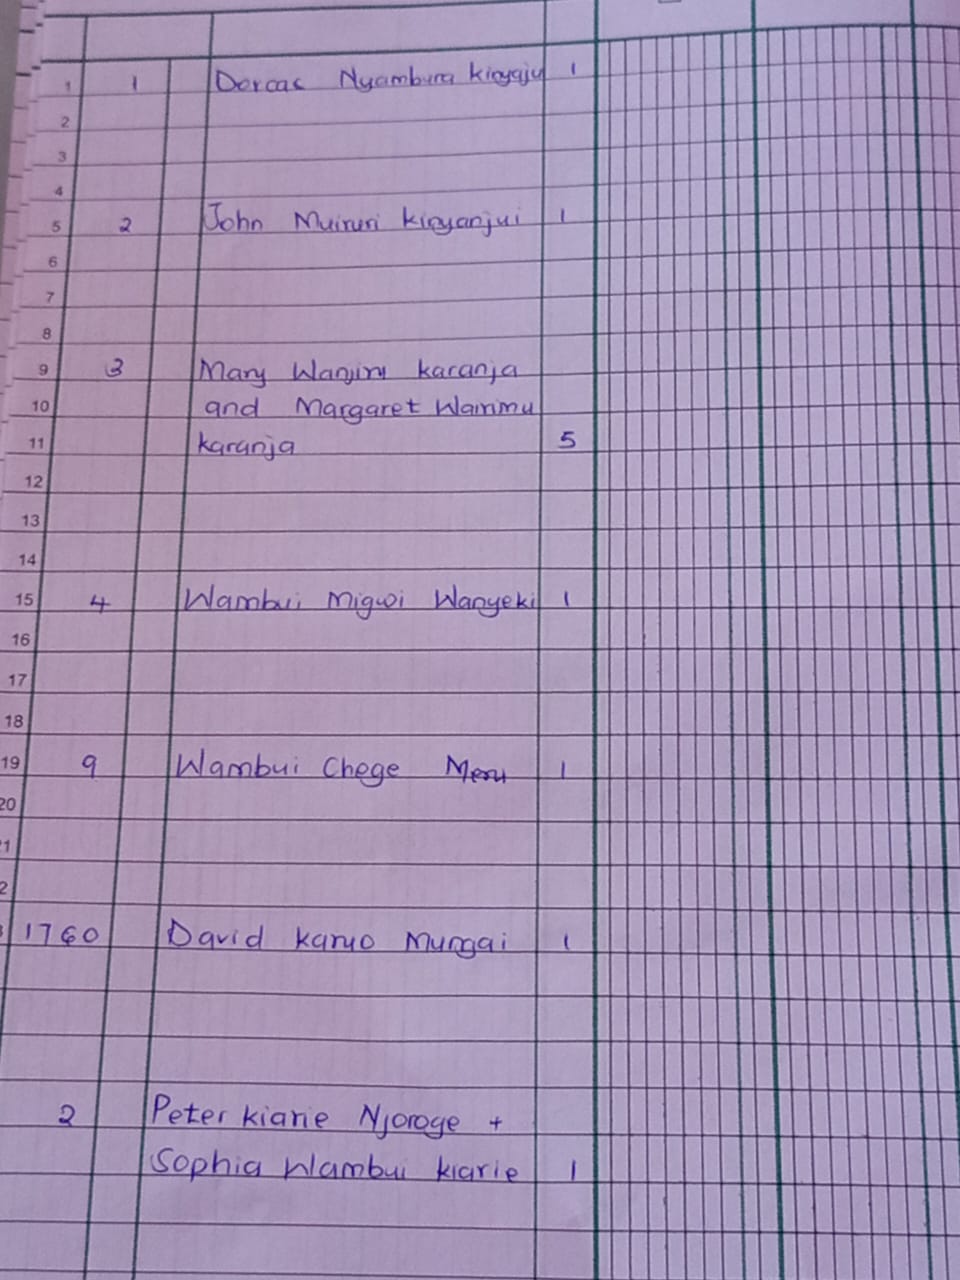 1 1 Dorcas Nyambura kinyaju 1
2
3
4
5 2 John Muiruri kinyanjui 1
6
7
8
9 3 Mary Wanjiru karanja
10 and Margaret Wairimu
11 karanja 5
12
13
14
15 4 Wambui Migwi Wanyeki 1
16
17
18
19 9 Wambui Chege Meru 1
20
1
2
1760 David Mungai 1
2 Peter kiarie Njoroge +
Sophia Wambui kiarie 1